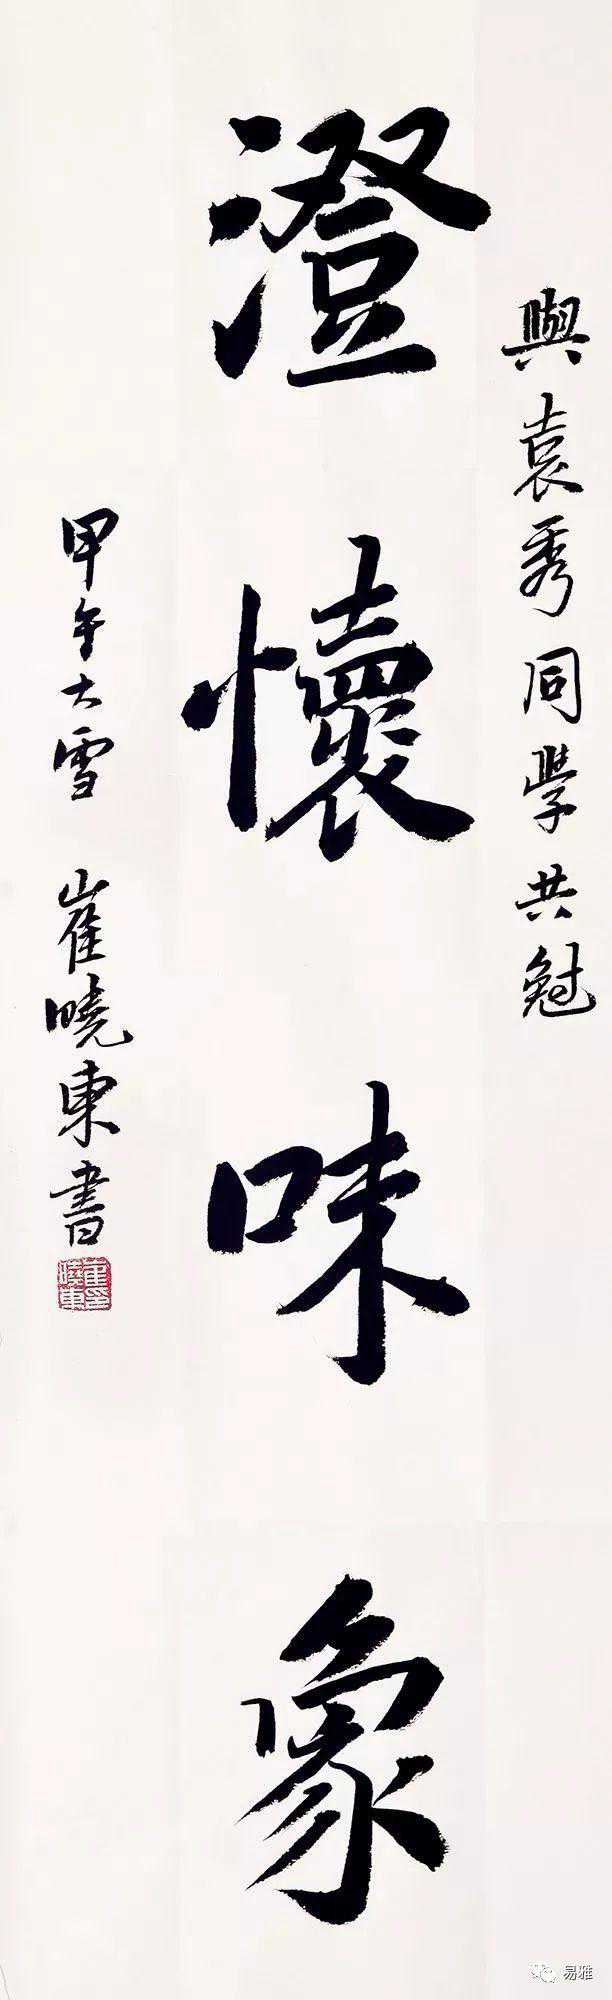 與袁秀同學共勉
澄懷味象
甲午大雪 崔曉東書
崔印曉東
易雅